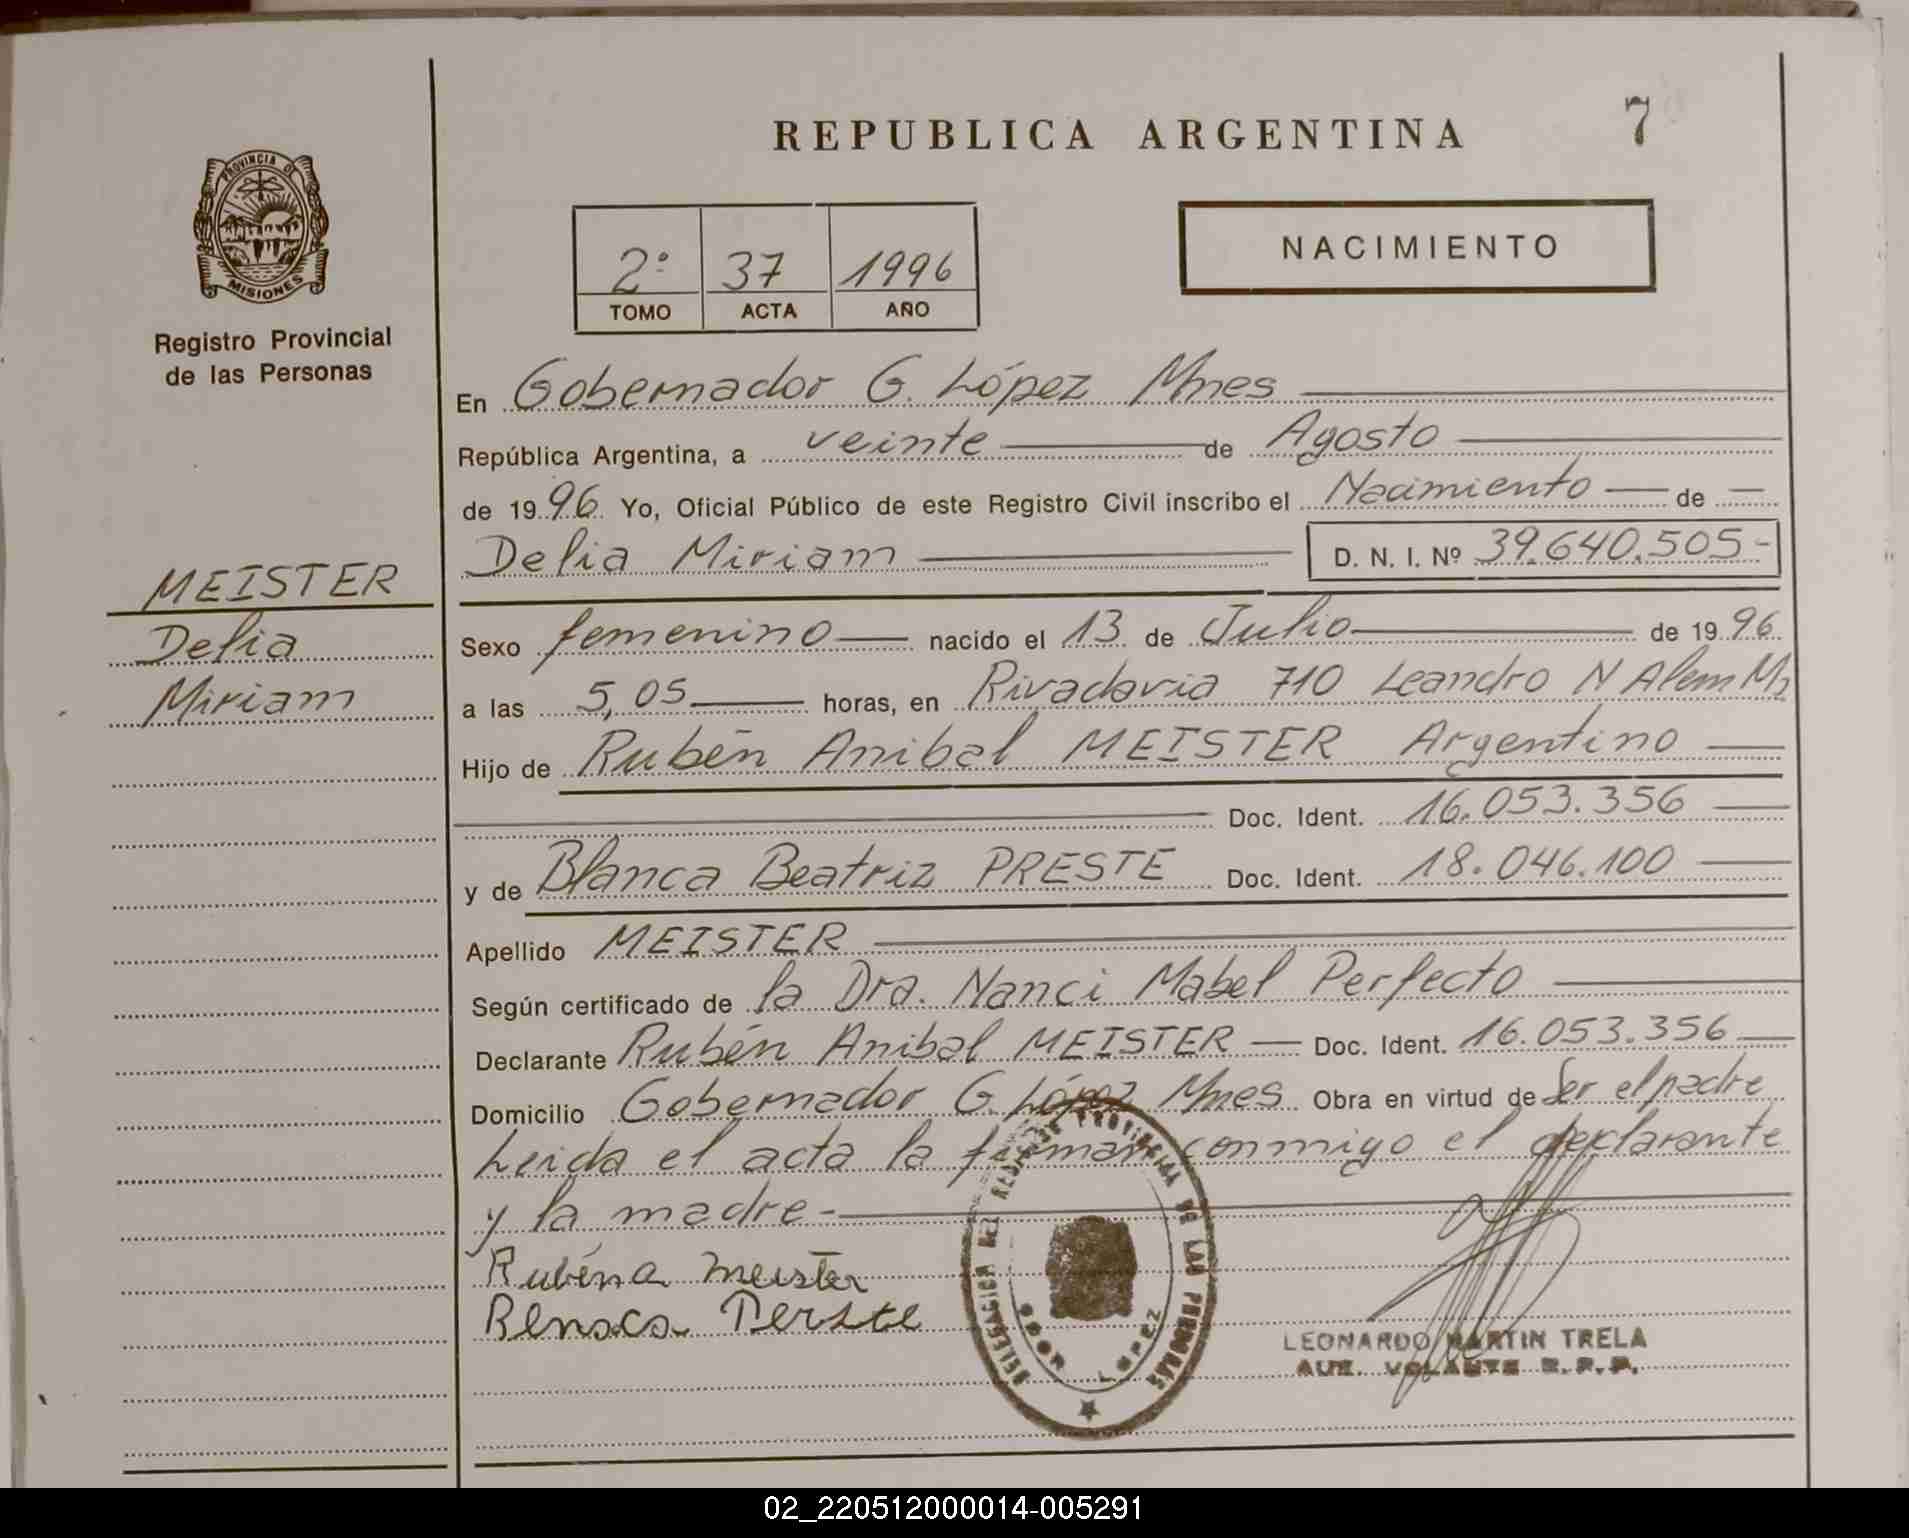 REPUBLICA ARGENTINA
7
PROVINCIA DE
MISIONES
Registro Provincial
de las Personas
2º 37 1996
TOMO ACTA AÑO
NACIMIENTO
MEISTER
Delia
Miriam
En Gobernador G. López Mnes
República Argentina, a veinte de Agosto
de 1996 Yo, Oficial Público de este Registro Civil inscribo el Nacimiento de
Delia Miriam D. N. I. Nº 39.640.505-
Sexo femenino nacido el 13 de Julio de 1996
a las 5,05 horas, en Rivadavia 710 Leandro N Alem Ms
Hijo de Rubén Anibal MEISTER Argentino
Doc. Ident. 16.053.356
y de Blanca Beatriz PRESTE Doc. Ident. 18.046.100
Apellido MEISTER
Según certificado de la Dra. Nanci Mabel Perfecto
Declarante Rubén Anibal MEISTER Doc. Ident. 16.053.356
Domicilio Gobernador G. López Mnes Obra en virtud de Ser el padre
Leida el acta la firman conmigo el declarante
y la madre-
Rubén A Meister
DELEGACION DEL REGISTRO PROVINCIAL DE LAS PERSONAS
GDOR LOPEZ
LEONARDO MARTIN TRELA
AUX. VOLANTE R.P.P.
02_220512000014-005291